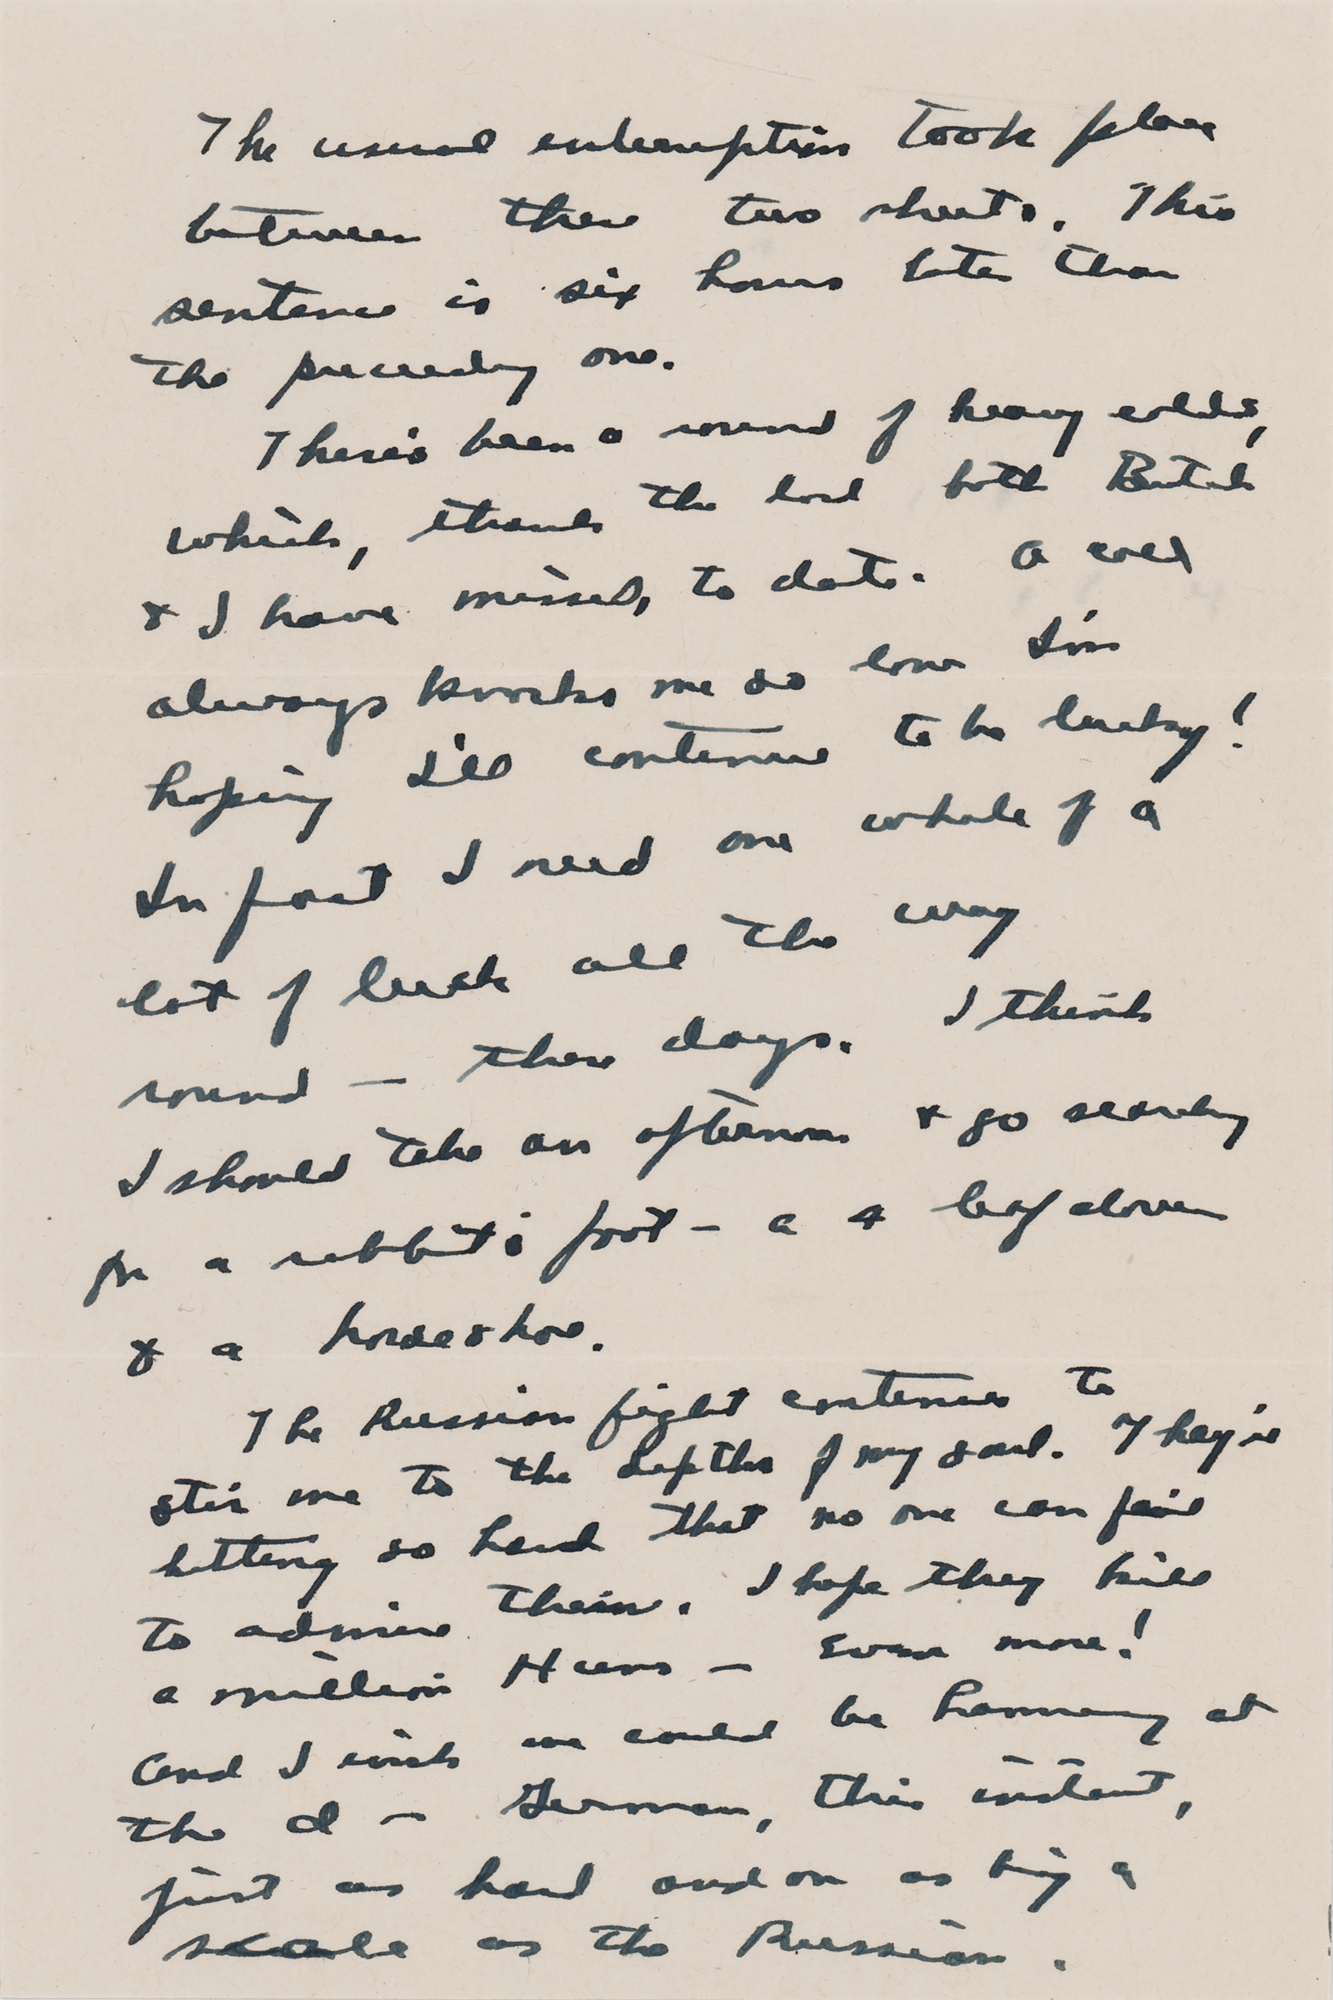 The usual interruption took place
between these two sheets. This
sentence is six hours later than
the preceding one.
There's been a round of heavy colds,
which, thank the lord both Butch
& I have missed, to date. A cold
always knocks me so low I'm
hoping I'll continue to be lucky!
In fact I need one whale of a
lot of luck all the way
round — these days. I think
I should take an afternoon & go searching
for a rabbit's foot – a 4 leaf clover
& a horseshoe.
The Russian fight continues to
stir me to the depths of my soul. They're
hitting so hard that no one can fail
to admire them. I hope they kill
a million Huns – even more!
And I wish we could be hammering at
the d — German, this instant,
just as hard and on as big a
scale as the Russian.